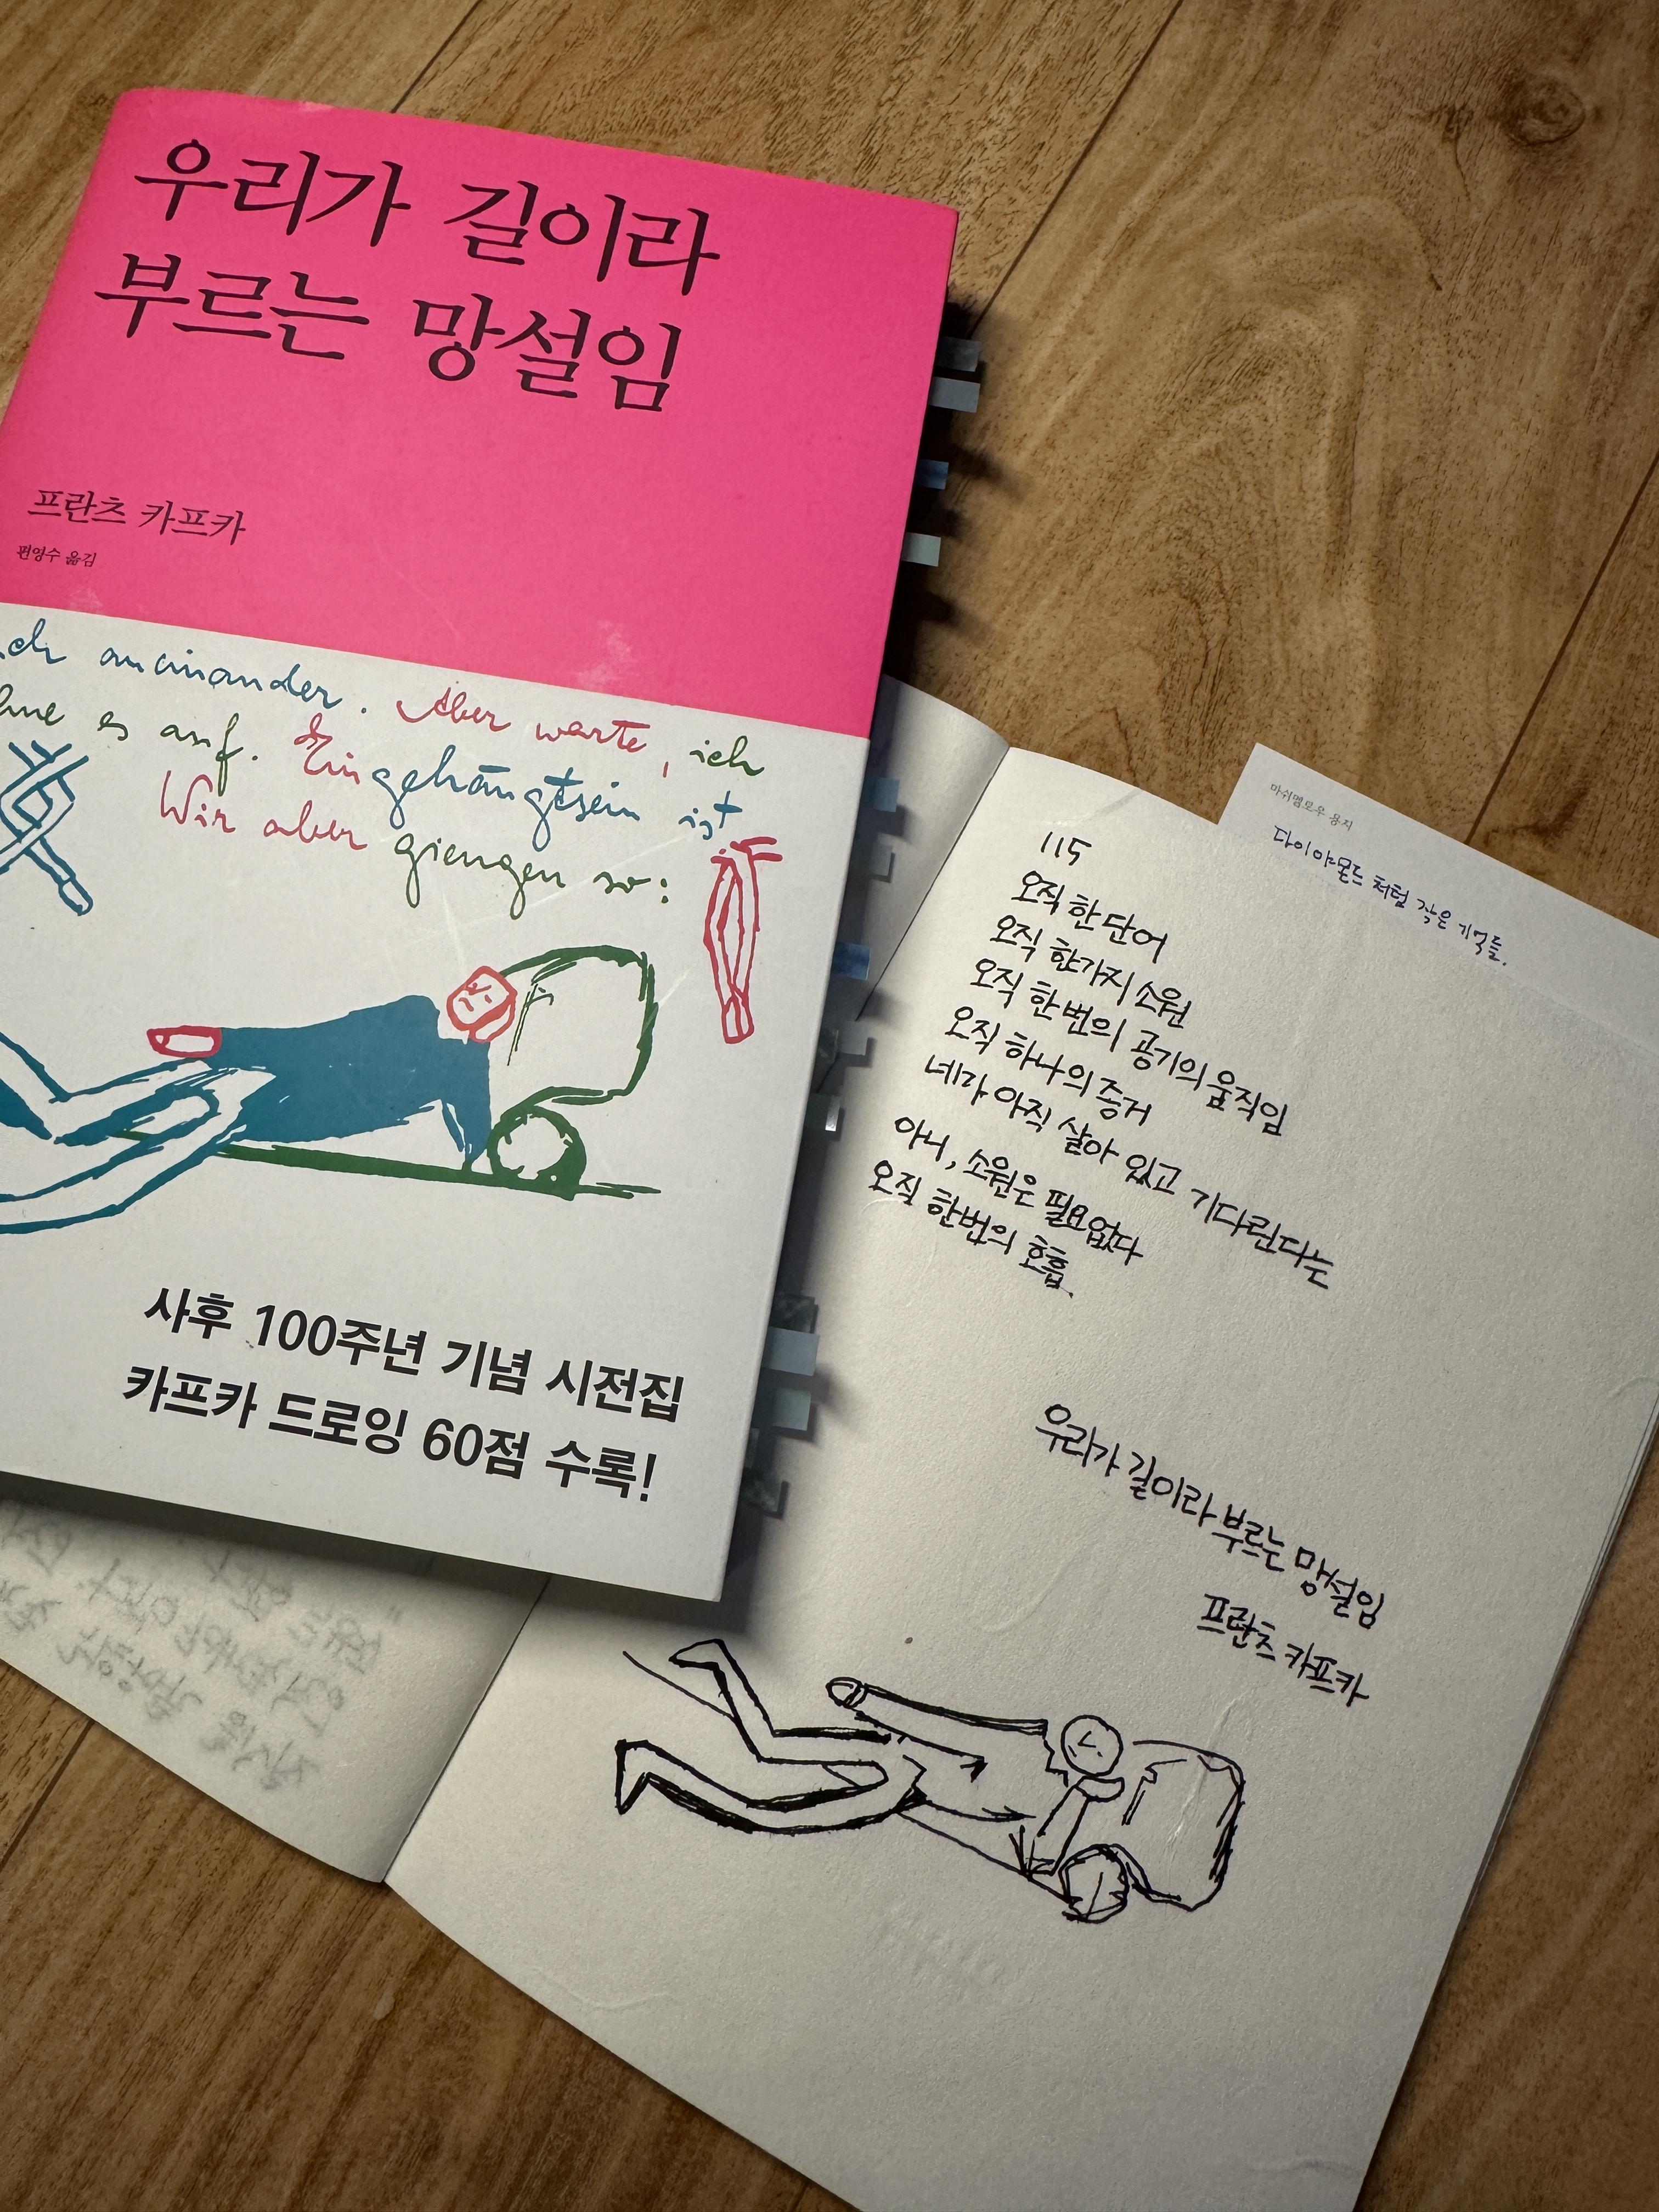 우리가 길이라
부르는 망설임
프란츠 카프카
편영수 옮김
aneinander. Aber warte, ich
es auf. Eingehängtsein ist
Wir aber giengen so:
사후 100주년 기념 시전집
카프카 드로잉 60점 수록!
마쉬멜로우 용지
다이아몬드 처럼 작은 기억들.
115
오직 한 단어
오직 한가지 소원
오직 한 번의 공기의 움직임
오직 하나의 증거
네가 아직 살아 있고 기다린다는
아니, 소원은 필요없다
오직 한번의 호흡.
우리가 길이라 부르는 망설임
프란츠 카프카